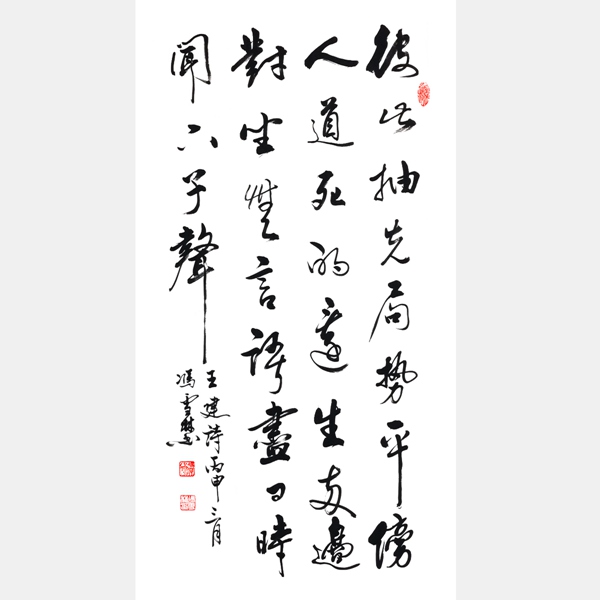 彼此抽先局勢平傍
人道死的還生兩邊
對坐無言語盡日時
聞下子聲
王建詩丙申三月
馮雪